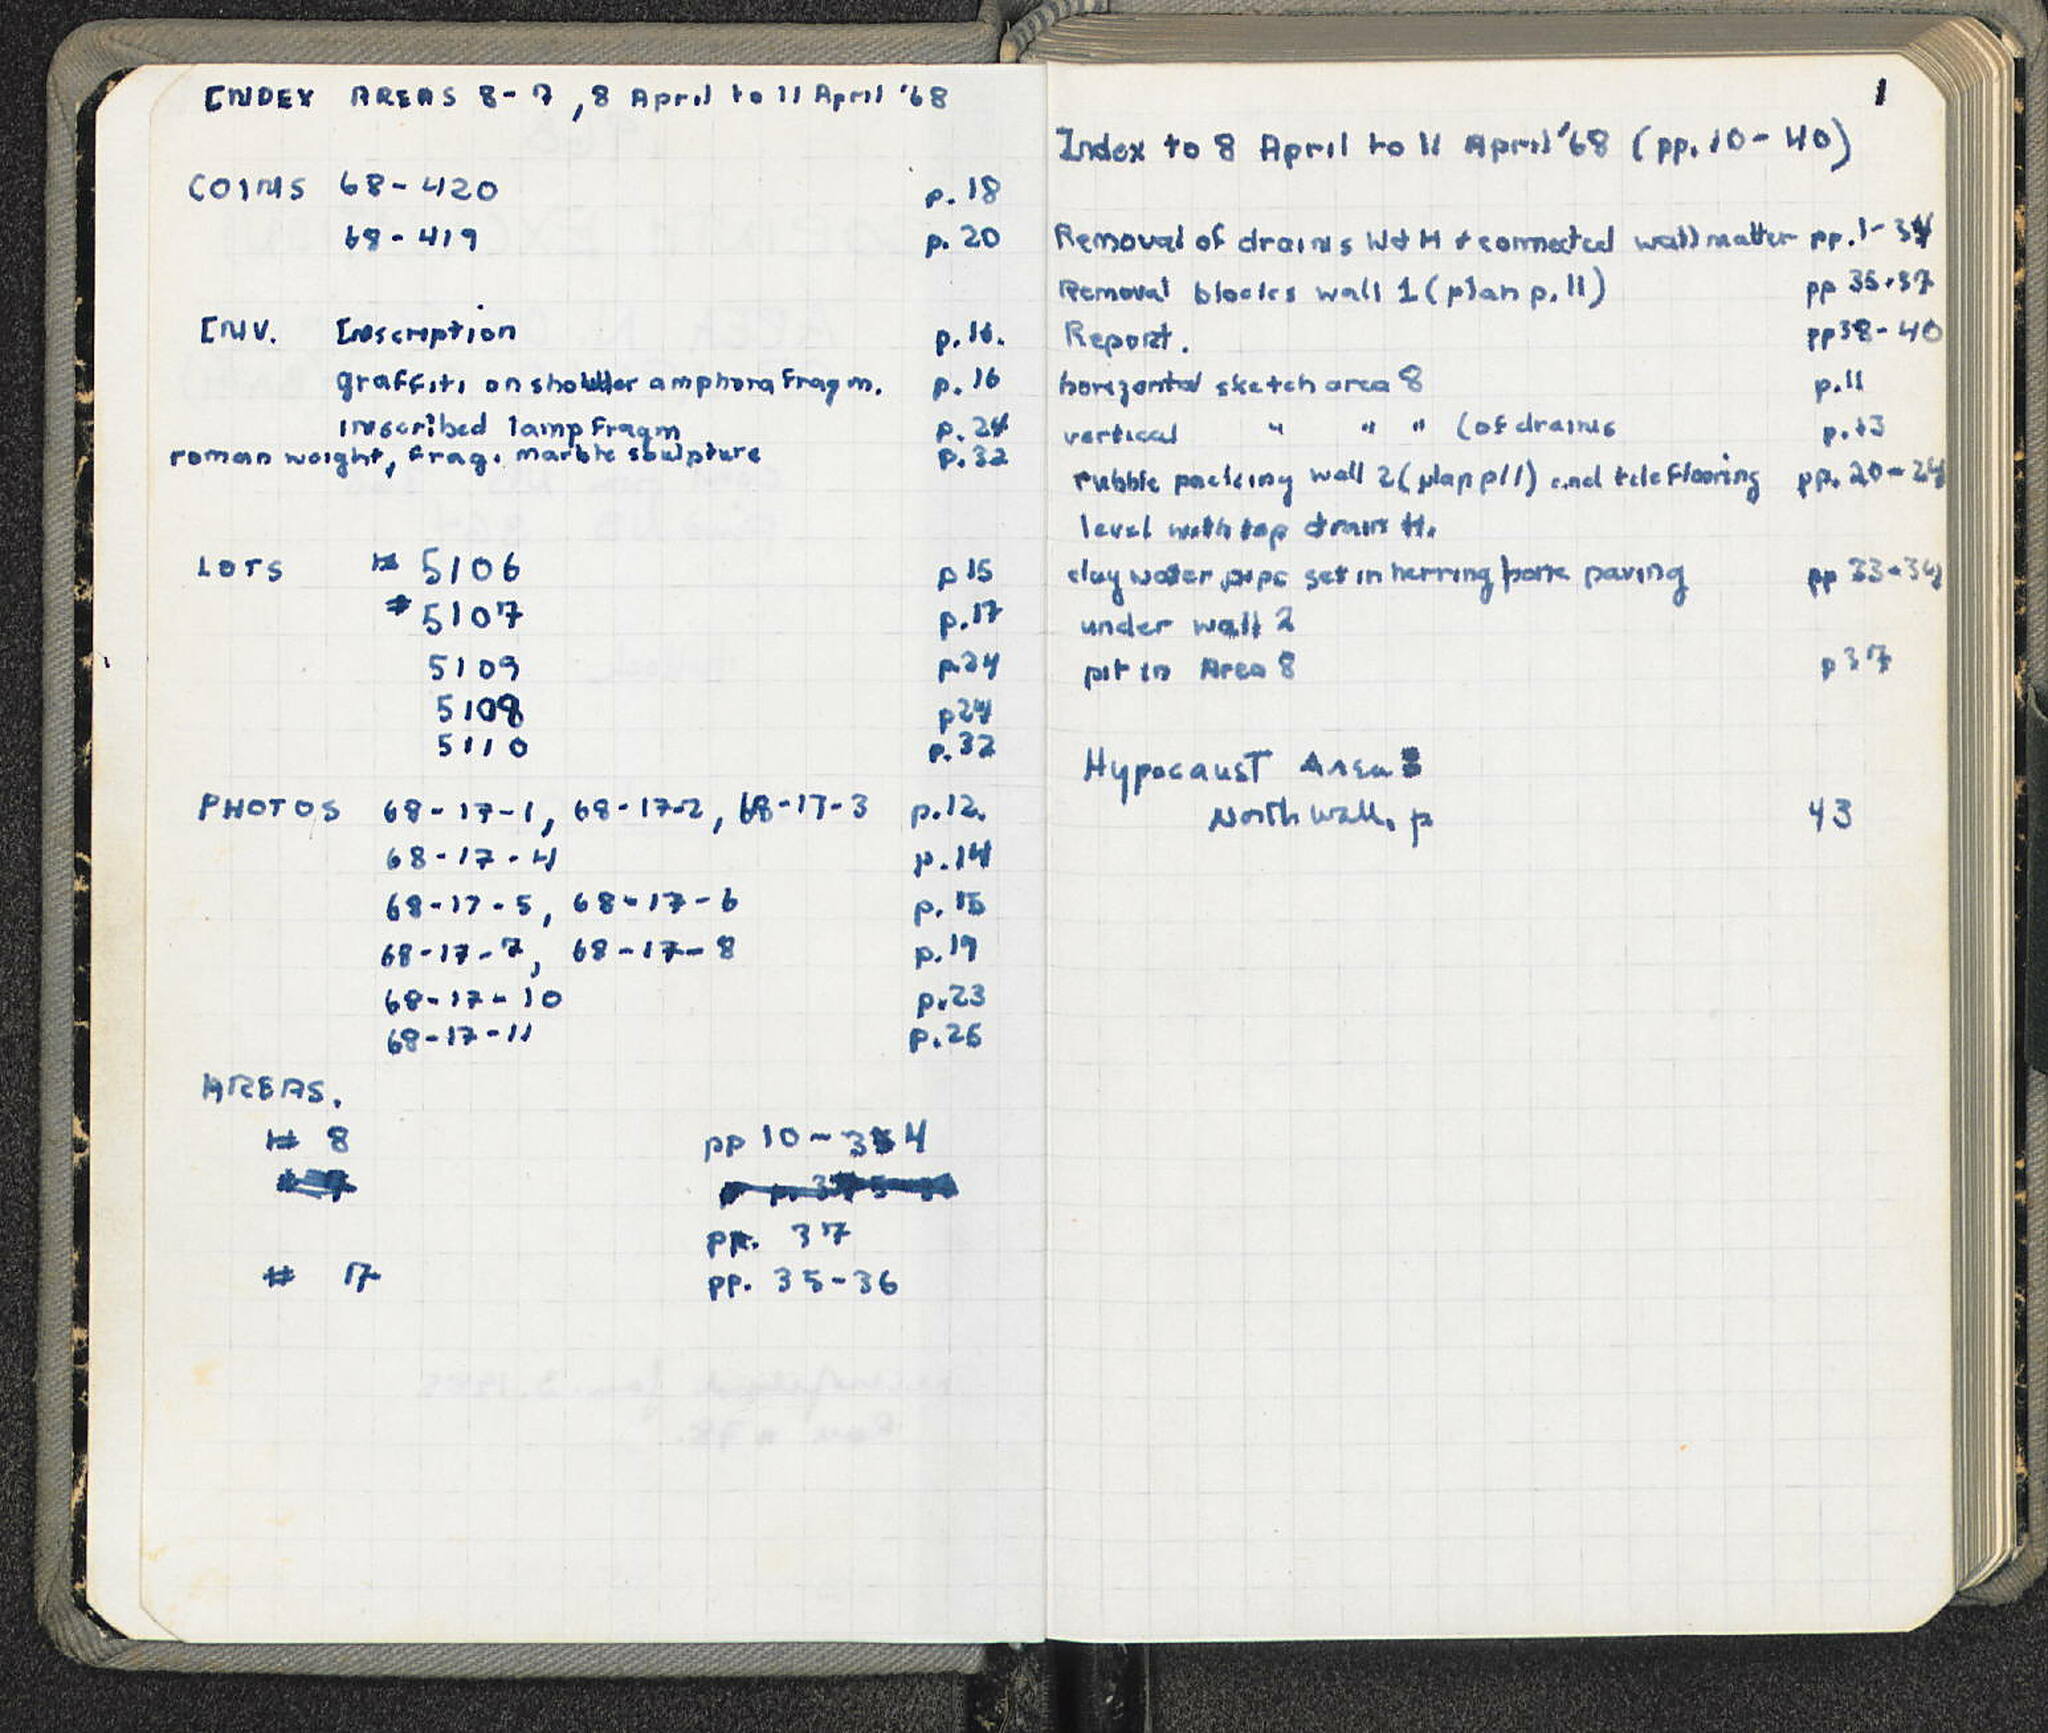 INDEX AREAS 8-7, 8 April to 11 April '68
COINS 68-420 p. 18
68-419 p. 20
INV. Inscription p. 16.
graffiti on shoulder amphora fragm. p. 16
inscribed lamp fragm p. 24
roman weight, frag. marble sculpture p. 32
LOTS # 5106 p 15
# 5107 p. 17
5109 p. 24
5108 p 24
5110 p. 32
PHOTOS 68-17-1, 68-17-2, 68-17-3 p. 12.
68-17-4 p. 14
68-17-5, 68-17-6 p. 15
68-17-7, 68-17-8 p. 19
68-17-10 p. 23
68-17-11 p. 26
AREAS.
# 8 pp 10-34
pp. 37
# 7 pp. 35-36
1
Index to 8 April to 11 April '68 (pp. 10-40)
Removal of drains W + H + connected wall matter pp. 1-34
Removal blocks wall 1 (plan p. 11) pp 35+37
Report. pp 38-40
horizontal sketch area 8 p. 11
vertical " " " (of drains p. 13
rubble packing wall 2 (plan p 11) and tile flooring pp. 20-24
level with top drain H.
clay water pipe set in herring bone paving pp 33-34
under wall 2
pit in Area 8 p 37
Hypocaust Area 8
North wall, p 43